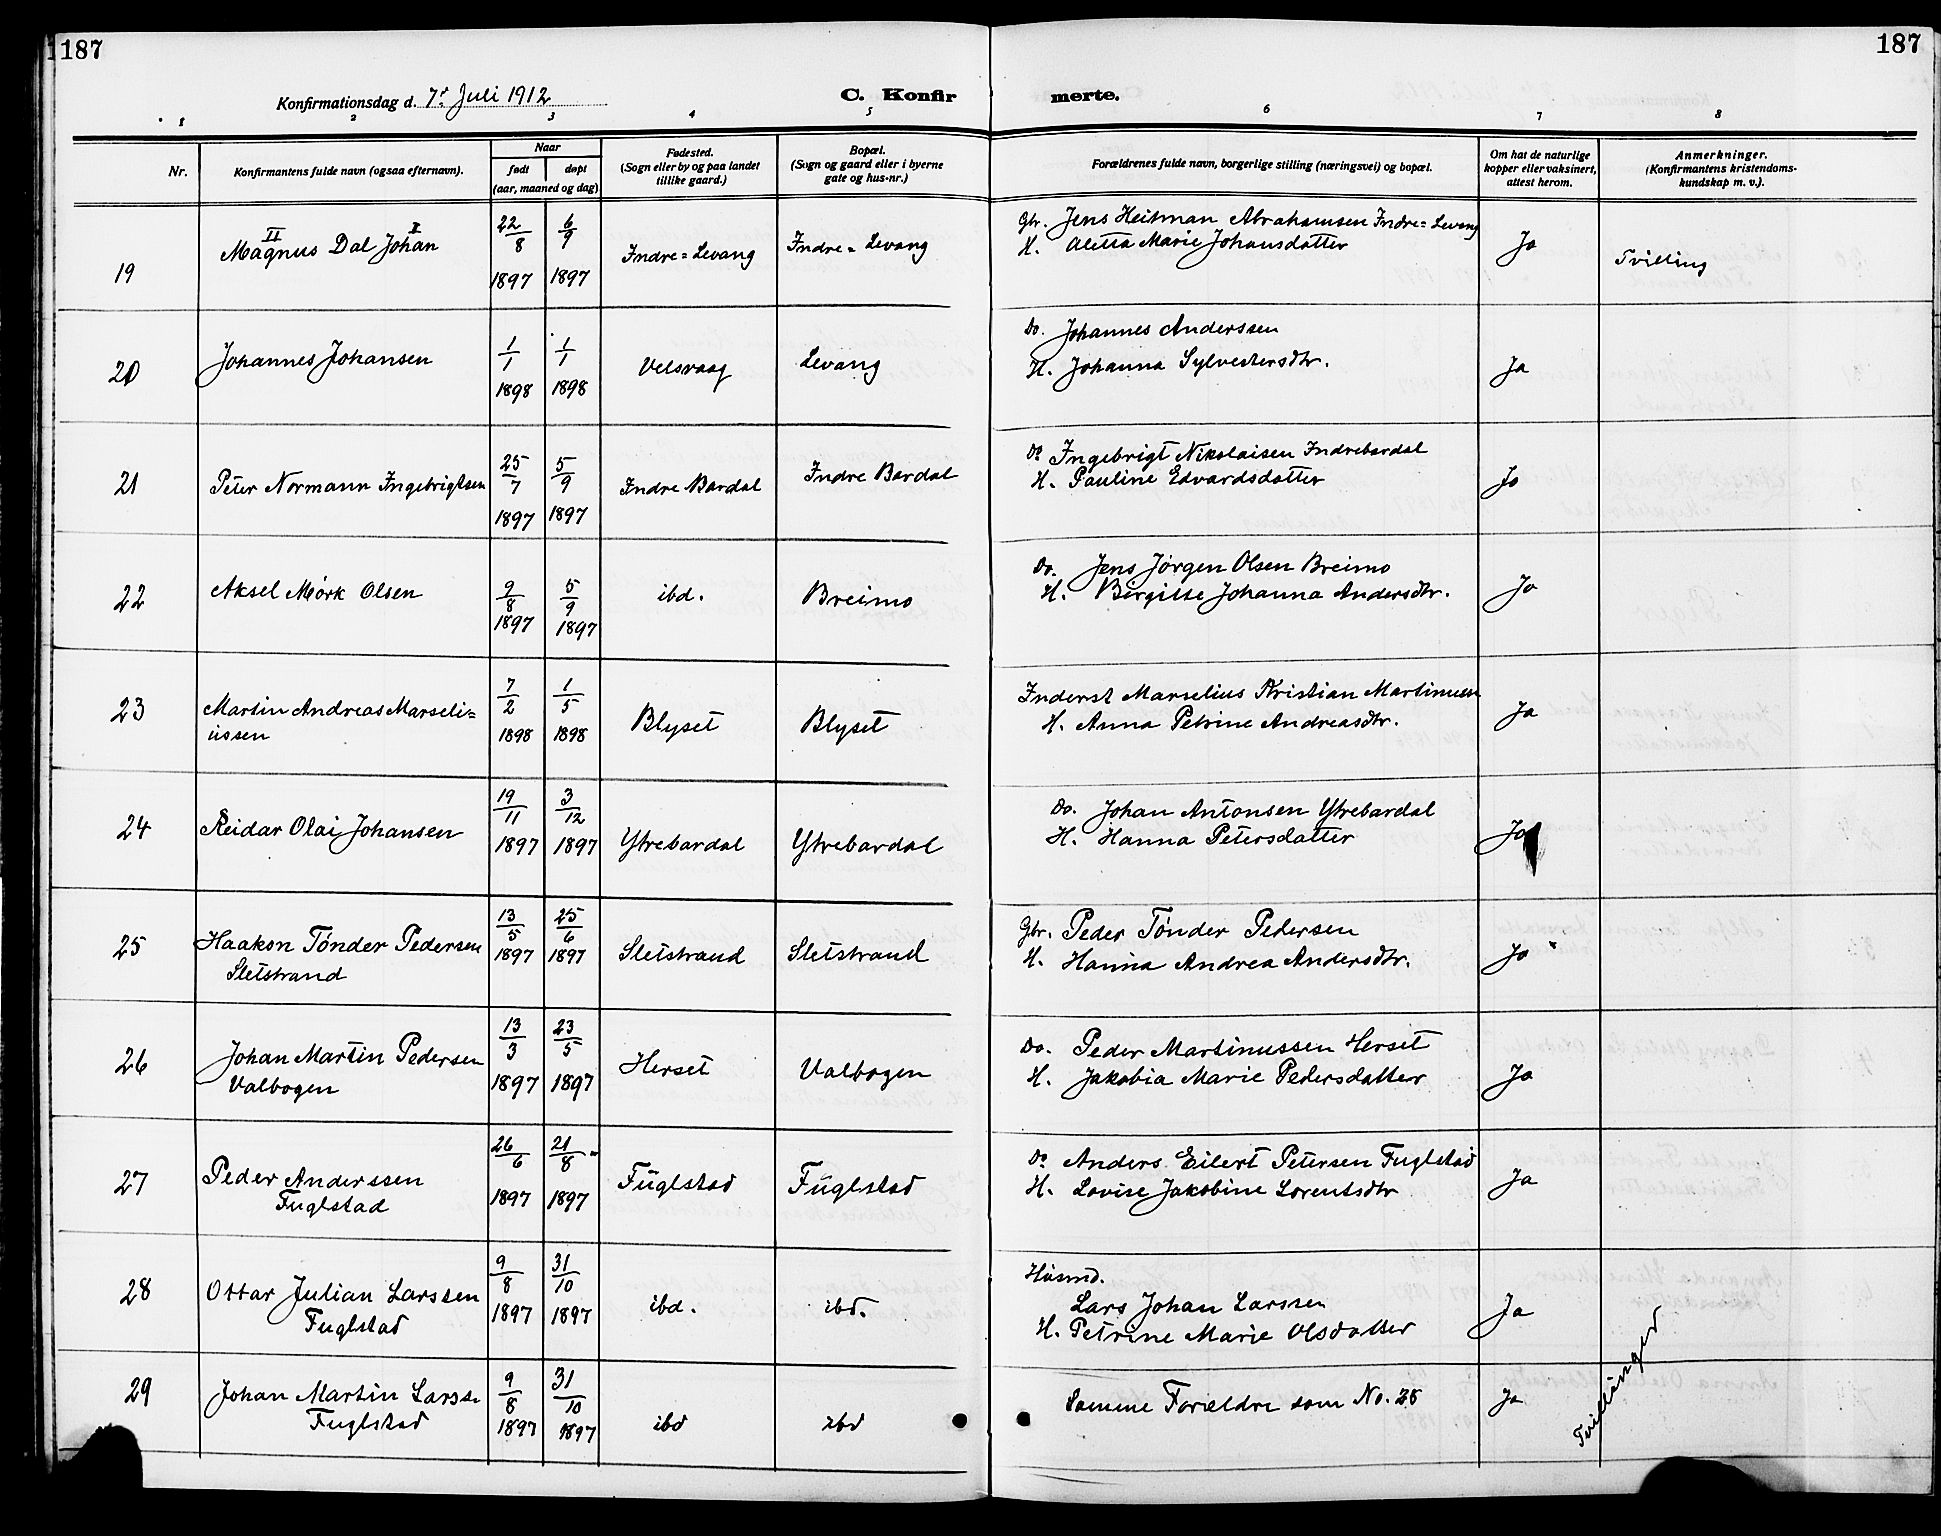 187
187
Konfirmationsdag d. 7de Juli 1912
C. Konfir merte.
1 2 3 4 5 6 7 8
Nr.
Konfirmantens fulde navn (ogsaa efternavn).
Naar
født
døpt
(aar, maaned og dag)
Fødested.
(Sogn eller by og paa landet
tillike gaard.)
Bopæl.
(Sogn og gaard eller i byerne
gate og hus-nr.)
Forældrenes fulde navn, borgerlige stilling (næringsvei) og bopæl.
Om hat de naturlige
kopper eller vaksinert,
attest herom.
Anmerkninger.
(Konfirmantens kristendoms-
kundskap m. v.).
19
II I
Magnus Dal Johan
22/8 1897
6/9 1897
Indre=Levang
Indre=Levang
Gbr. Jens Heitman Abrahamsen Indre=Levang
H. Aletta Marie Johansdatter
Ja
Tvilling
20
Johannes Johansen
1/1 1898
1/1 1898
Velsvaag
Levang
Do. Johannes Anderssen
H. Johanna Sylvestersdtr.
Ja
21
Peter Normann Ingebrigtsen
25/7 1897
5/9 1897
Indre Bardal
Indre Bardal
Do Ingebrigt Nikolaisen Indrebardal
H. Pauline Edvardsdatter
Ja
22
Aksel Mørk Olsen
9/8 1897
5/9 1897
ibd.
Breimo
Do. Jens Jørgen Olsen Breimo
H. Birgitte Johanna Andersdtr.
Ja
23
Martin Andreas Marseli=
ussen
7/2 1898
1/5 1898
Blyset
Blyset
Inderst Marselius Kristian Martinusen
H. Anna Petrine Andreasdtr.
Ja
24
Reidar Olai Johansen
19/11 1897
3/12 1897
Ytrebardal
Ytrebardal
Do. Johan Antonsen Ytrebardal
H. Hanna Petersdatter
Ja
25
Haakon Tønder Pedersen
Sletstrand
13/5 1897
25/6 1897
Sletstrand
Sletstrand
Gbr. Peder Tønder Pedersen
H. Hanna Andrea Andersdtr.
Ja
26
Johan Martin Pedersen
Valbogen
13/3 1897
23/5 1897
Herset
Valbogen
Do. Peder Martinussen Herset
H. Jakobia Marie Pedersdatter
Ja
27
Peder Anderssen
Fuglstad
26/6 1897
21/8 1897
Fuglstad
Fuglstad
Do Anders Eilert Petersen Fuglstad
H. Lovise Jakobine Lorentsdtr
Ja
28
Ottar Julian Larssen
Fuglstad
9/8 1897
31/10 1897
ibd.
ibd.
Husmd.
Lars Johan Larssen
H. Petrine Marie Olsdatter
Ja
29
Johan Martin Larsse
Fuglstad
9/8 1897
31/10 1897
ibd
ibd
Samme Forældre som No. 28
Ja
Tvillinger